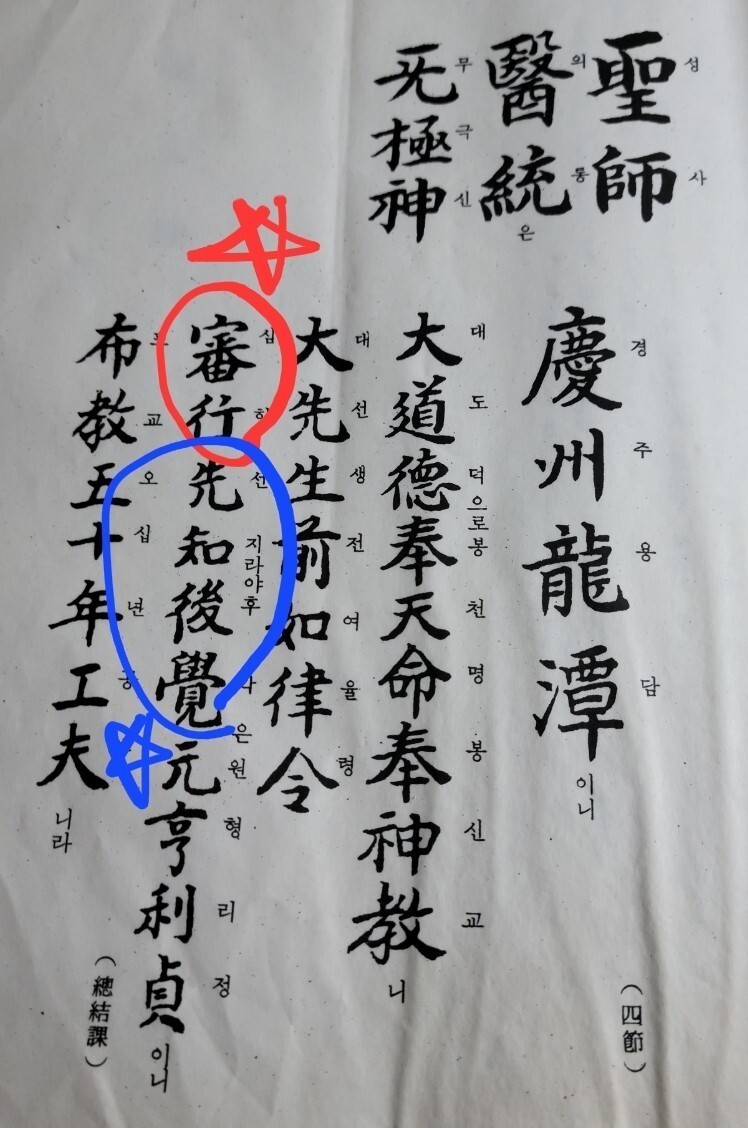 聖師
성사
醫統은
의통
无極神
무극신
慶州龍潭이니
경주용담
(四節)
大道德奉天命奉神教니
대도덕으로봉천명봉신교
大先生前如律令
대선생전여율령
審行先知後覺元亨利貞이니
선지라야후 은원형리정
布教五十年工夫니라
교오십년
(總結課)